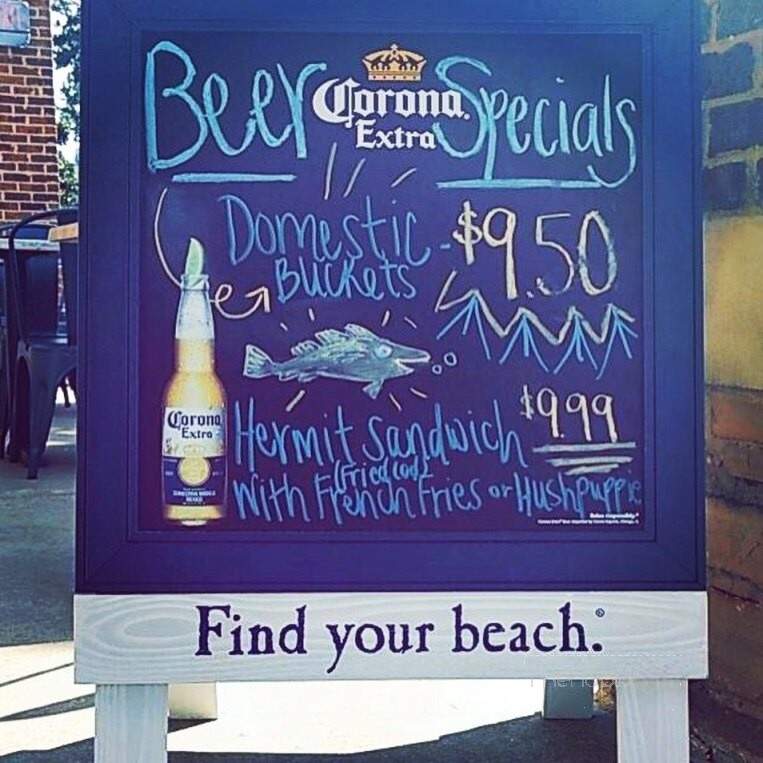 Beer Corona Specials
Extra
Domestic - $9.50
Buckets
Hermit Sandwich $9.99
(Fried Cod)
With French Fries or Hushpuppie
Corona
Extra
Find your beach.